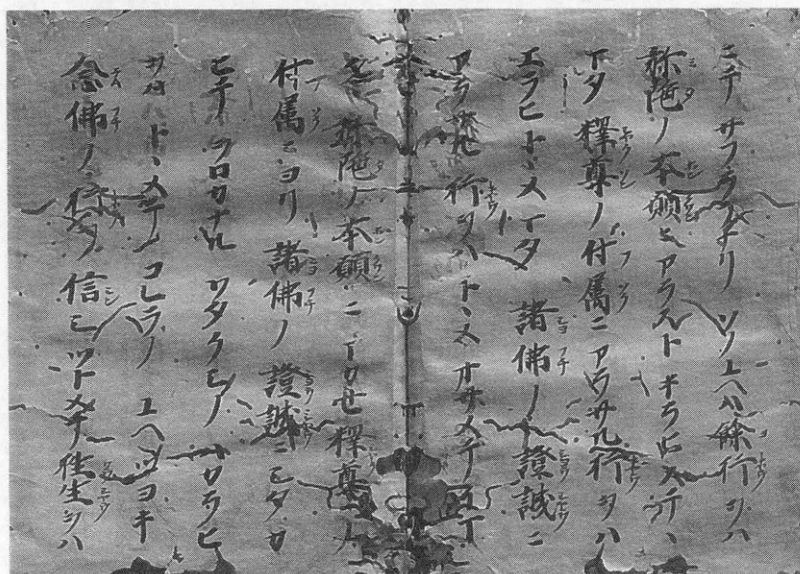 ニテサフラフナリ ソノユヘハ餘行ヲハ
弥陀ノ本願ニアラストキラヒステヽ
マタ釋尊ノ付属ニアラサル行ヲハ
エラヒトヽメマタ 諸佛ノ證誠ニ
アラサル行ヲハトヽメオサメテイマ
タヽ弥陀ノ本願ニマカセ釋尊ノ
付属ニヨリ 諸佛ノ證誠ニシタカ
ヒテ オロカナル ワタクシノハカラヒ
ヲハトヽメテ コレラノユヘツヨキ
念佛ノ行ヲ信シツトメテ往生ヲハ